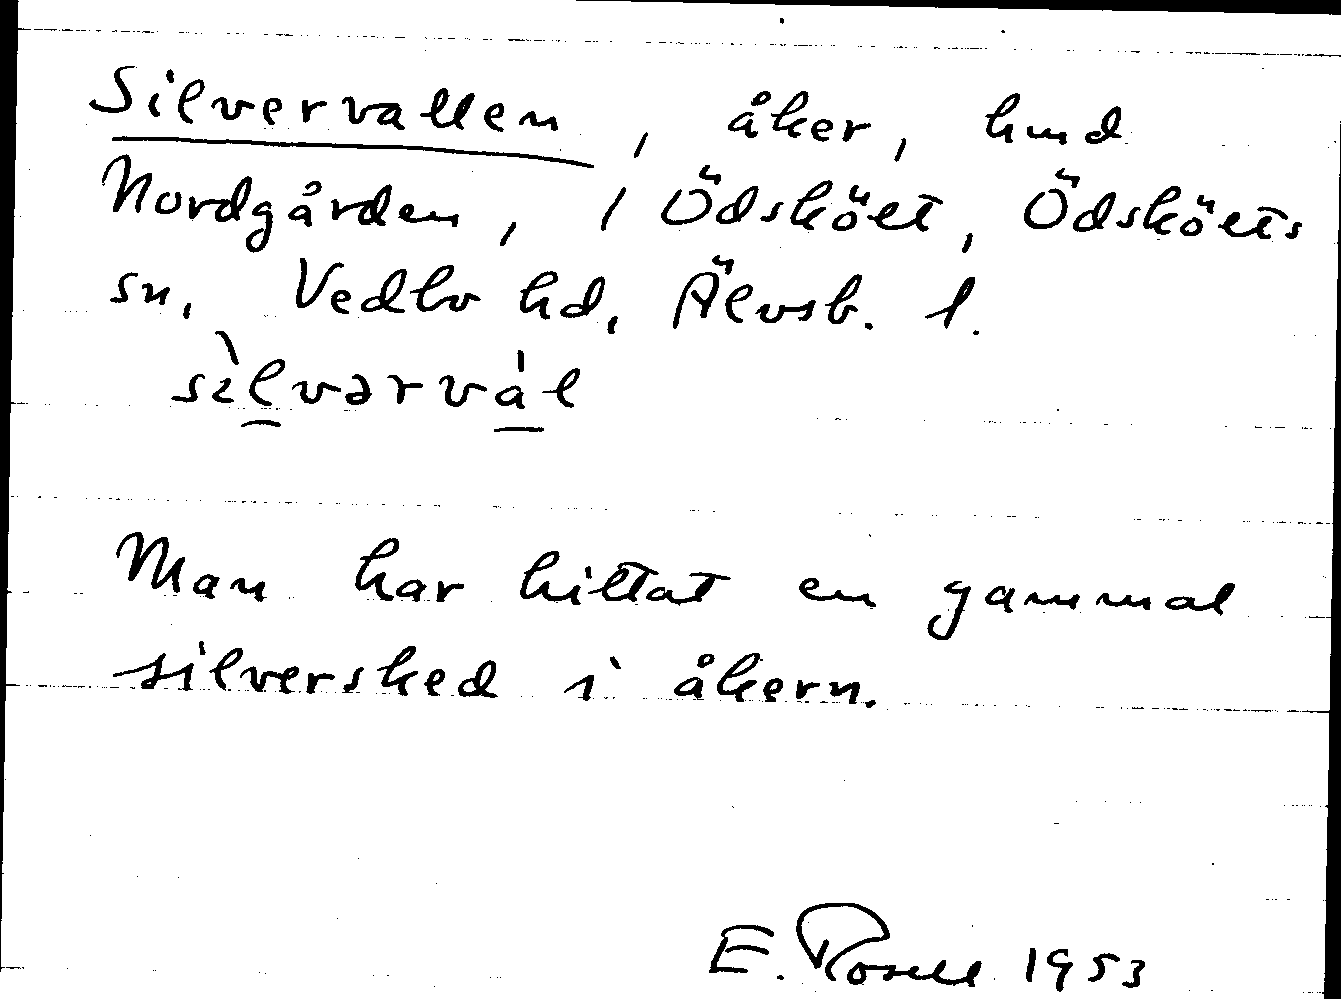 Silvervallen, åker, hmd
Nordgården, 1 Ödskölt, Ödskölts
sn, Vedbo hd, Älvsb. l.
sìlvərvál
Man har hittat en gammal
silversked i åkern.
E. Rosell 1953